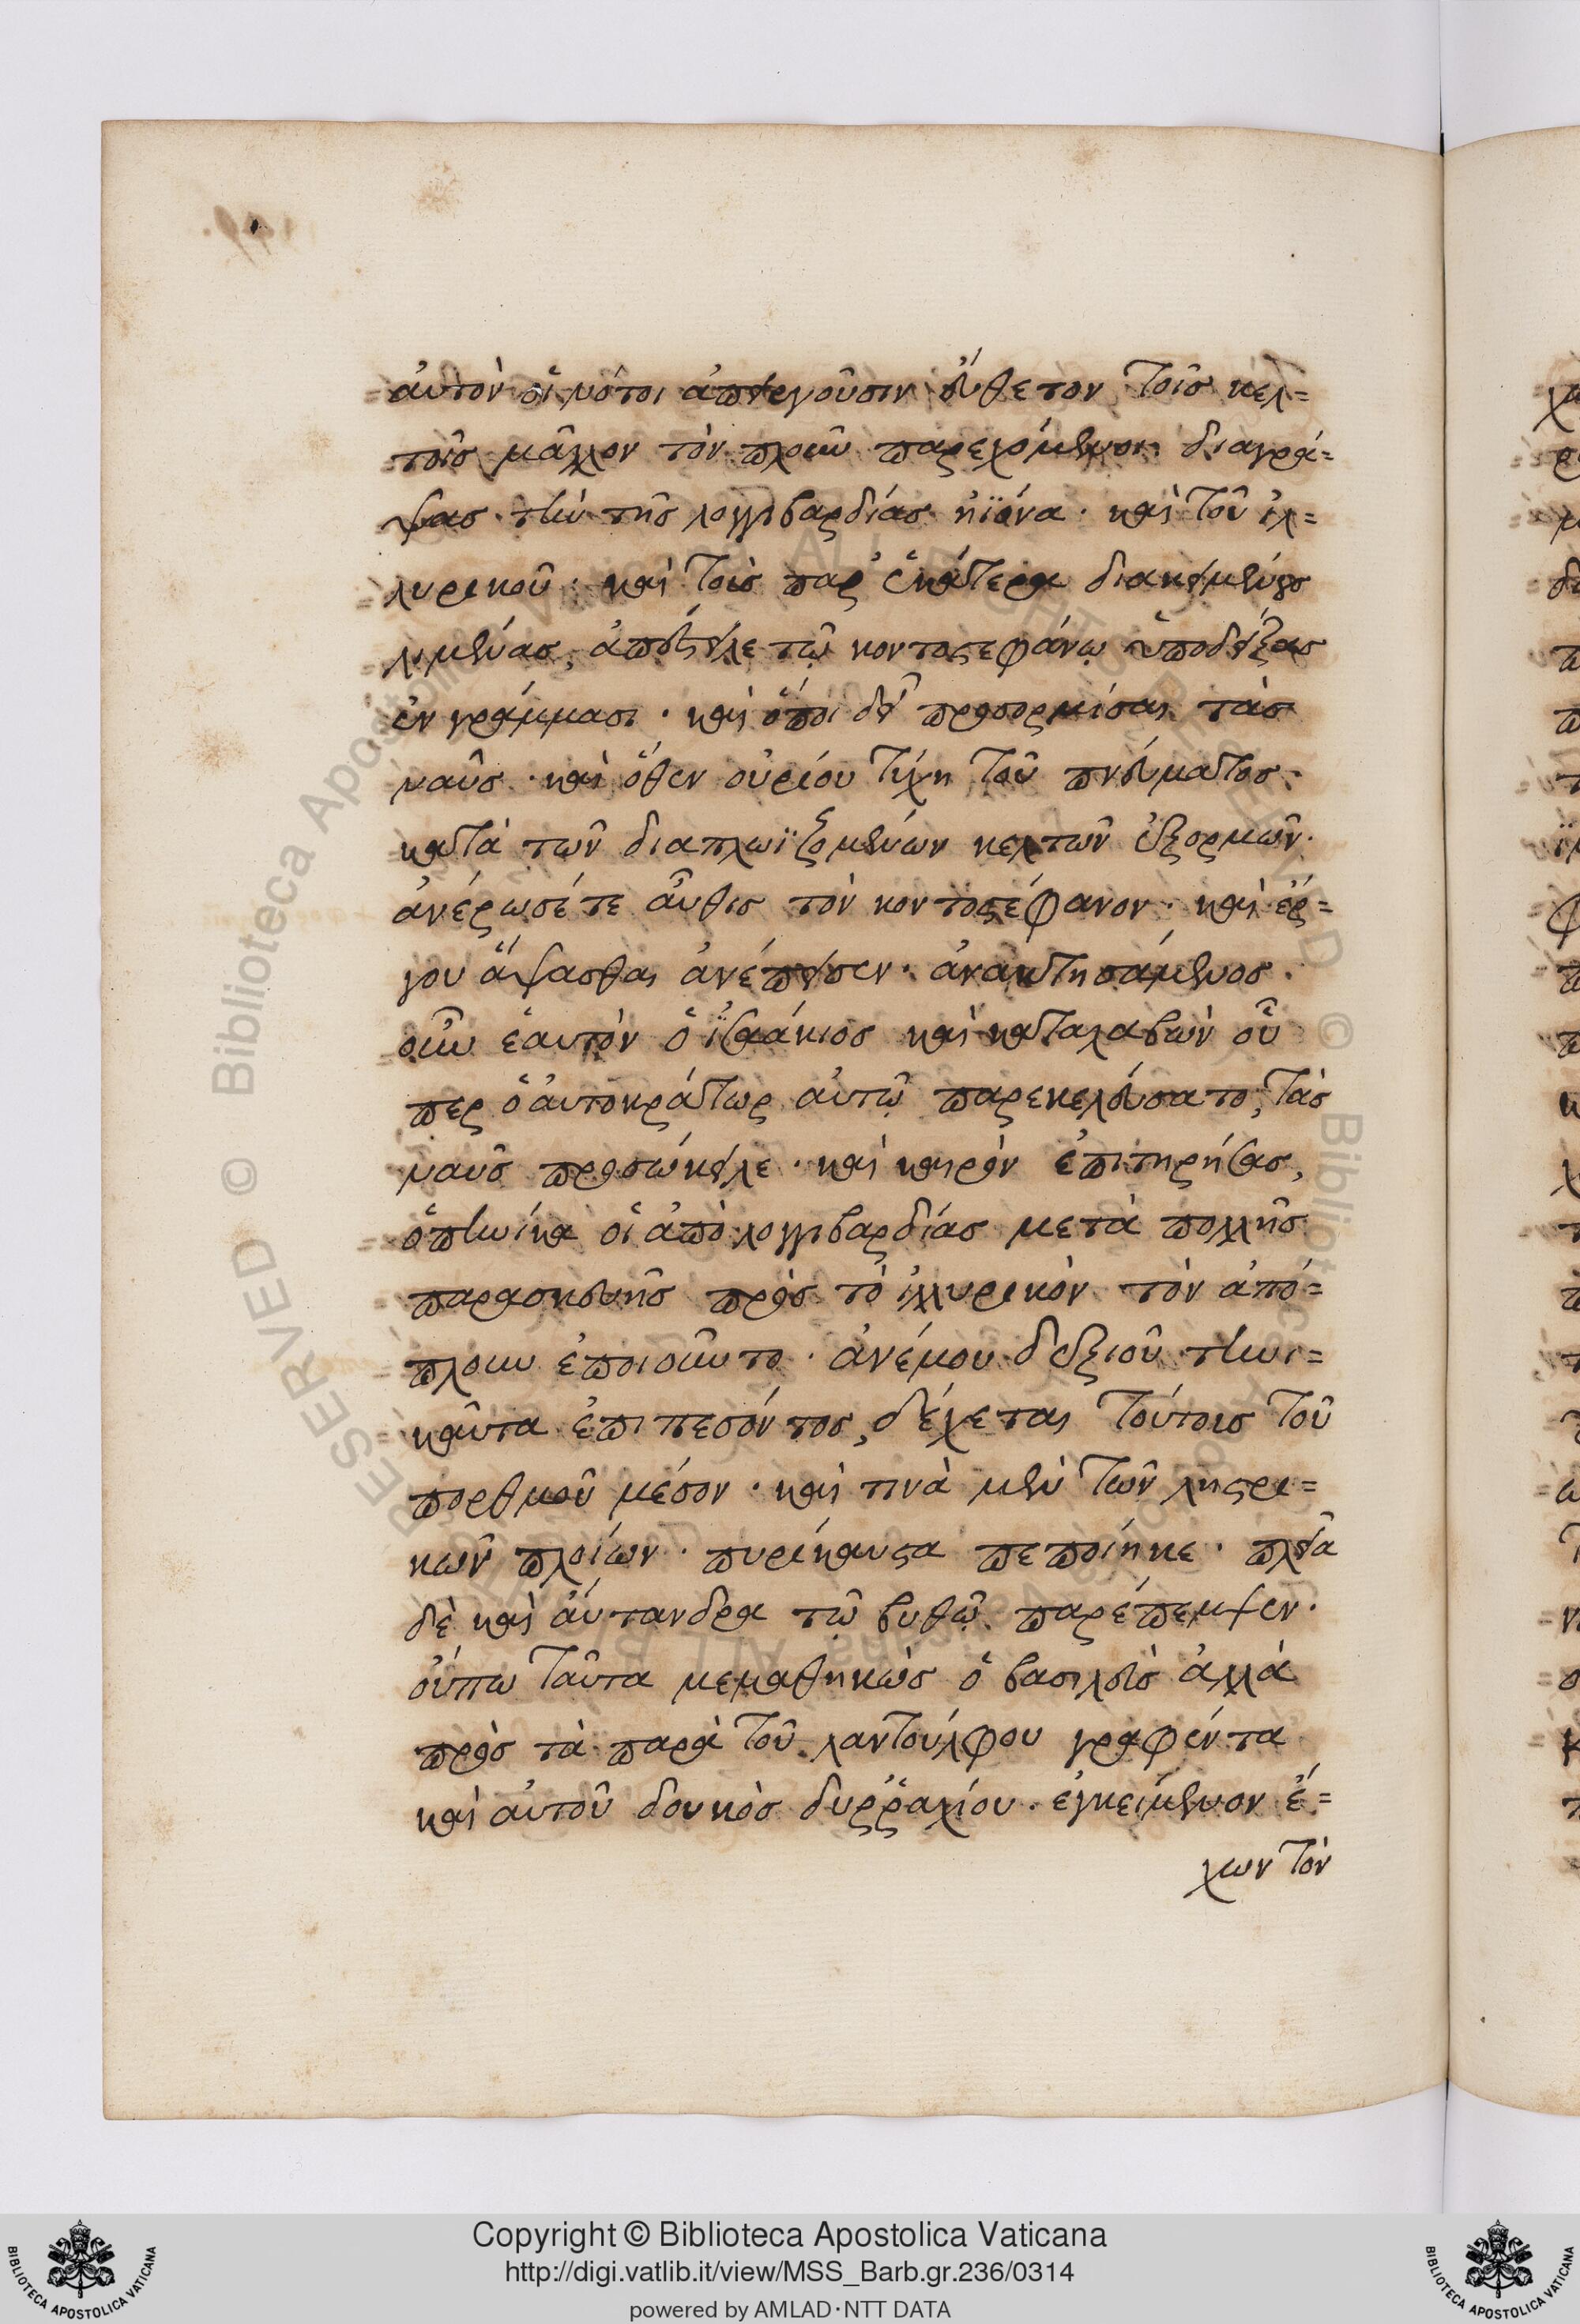 αὐτὸν οἱ νότοι ἀπείργουσιν εὔθετον τοῖς κελ=
τοῖς μᾶλλον τὸν πλοῦν παρεχόμενοι διαγρά=
ψας τὴν τῆς λογγιβαρδίας ἠϊόνα· καὶ τοῦ ἰλ=
λυρικοῦ· καὶ τοὺς παρ' ἑκάτερα διακειμένους
λιμένας, ἀπέστειλε τῷ κοντοστεφάνῳ ὑποδείξας
ἐν γράμμασι· καὶ ὅποι δεῖ προσορμίσαι τὰς
ναῦς· καὶ ὅθεν οὐρίου τύχῃ τοῦ πνεύματος·
κατὰ τῶν διαπλωϊζομένων κελτῶν ἐξορμῶν·
ἀνέρρωσέ τε αὖθις τὸν κοντοστέφανον· καὶ ἔρ=
γου ἅψασθαι ἀνέπεισεν· ἀνακτησάμενος
οὖν ἑαυτὸν ὁ ἰσαάκιος καὶ καταλαβὼν οὗ
περ ὁ αὐτοκράτωρ αὐτῷ παρεκελεύσατο, τὰς
ναῦς προσώκειλε· καὶ καιρὸν ἐπιτηρήσας,
ὁπηνίκα οἱ ἀπὸ λογγιβαρδίας μετὰ πολλῆς
παρασκευῆς πρὸς τὸ ἰλλυρικὸν τὸν ἀπό=
πλουν ἐποιοῦντο· ἀνέμου δεξιοῦ τηνι=
καῦτα ἐπιπεσόντος, δέχεται τούτοις τοῦ
πορθμοῦ μέσον· καὶ τινὰ μὲν τῶν λῃστρι=
κῶν πλοίων· πυρίκαυστα πεποίηκε· πλεῖα
δὲ καὶ αὔτανδρα τῷ βυθῷ παρέπεμψεν·
οὔπω ταῦτα μεμαθηκὼς ὁ βασιλεὺς ἀλλὰ
πρὸς τὰ παρὰ τοῦ λαντούλφου γραφέντα
καὶ αὐτοῦ δουκὸς δυρῥαχίου· ἐγκείμενον ἔ=
χων τὸν
Copyright © Biblioteca Apostolica Vaticana
http://digi.vatlib.it/view/MSS_Barb.gr.236/0314
powered by AMLAD·NTT DATA